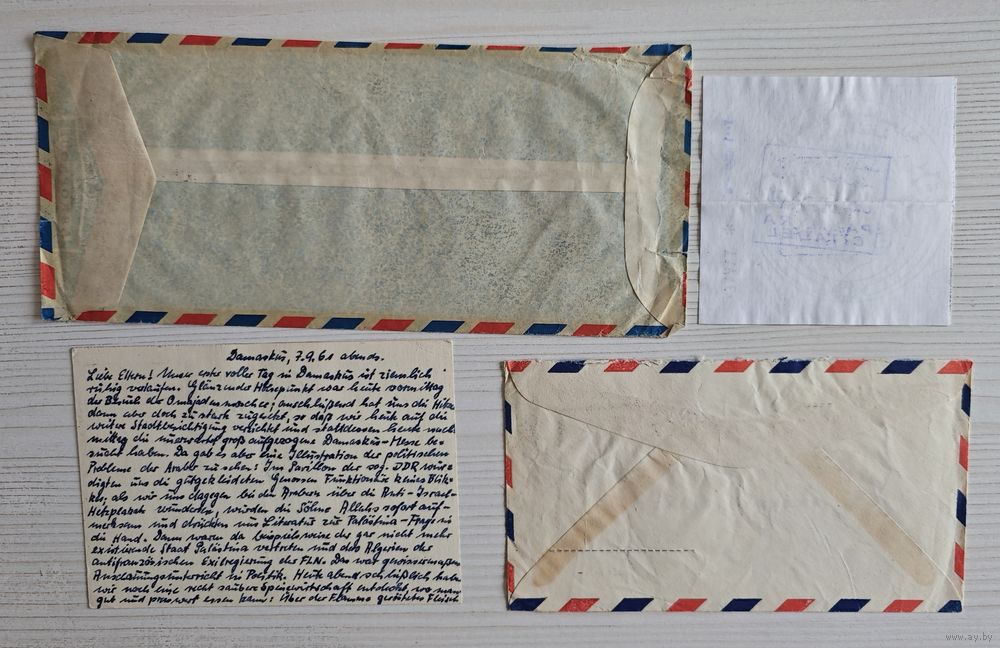 Damaskus, 7.9.61 abends.
Liebe Eltern! Unser erster voller Tag in Damaskus ist ziemlich
ruhig verlaufen. Glänzender Höhepunkt war heute vormittag
der Besuch der Omajadenmoschee; anschließend hat uns die Hitze
dann aber doch zu stark zugesetzt, so daß wir heute auf die
weitere Stadtbesichtigung verzichtet und stattdessen heute nach-
mittag die unerwartet groß aufgezogene Damaskus-Messe be-
sucht haben. Da gab es aber eine Illustration der politischen
Probleme der Araber zu sehen: Im Pavillon der sog. DDR wür-
digten uns die gutgekleideten Genossen Funktionäre keines Blik-
kes; als wir uns dagegen bei den Arabern über die Anti-Israel-
Hetzplakate wunderten, wurden die Söhne Allahs sofort auf-
merksam und drückten uns Literatur zur Palästina-Frage in
die Hand. Dann waren da beispielsweise der gar nicht mehr
existierende Staat Palästina vertreten und das Algerien der
antifranzösischen Exilregierung der FLN. Das war gewissermaßen
Anschauungsunterricht in Politik. Heute abend schließlich haben
wir noch eine recht saubere Speisewirtschaft entdeckt, wo man
gut und preiswert essen kann: Über der Flamme geröstetes Fleisch
www.ay.by